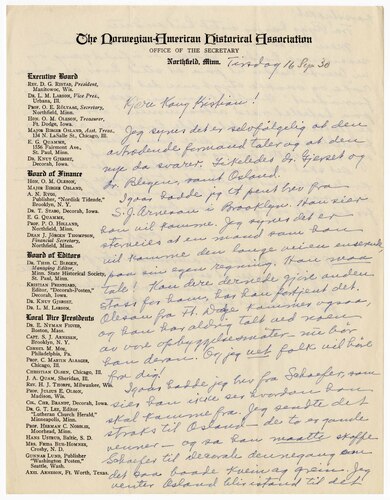 The Norwegian-American Historical Association
OFFICE OF THE SECRETARY
Northfield, Minn.
Tirsdag 16 Sep 30
Executive Board
REV. D. G. RISTAD, President,
Manitowoc, Wis.
DR. L. M. LARSON, Vice Pres.,
Urbana, Ill.
PROF. O. E. RÖLVAAG, Secretary,
Northfield, Minn.
HON. O. M. OLESON, Treasurer,
Ft. Dodge, Iowa.
MAJOR BIRGER OSLAND, Asst. Treas.
134 N. LaSalle St., Chicago, Ill.
E. G. QUAMME,
1586 Fairmont Ave.,
St. Paul, Minn.
DR. KNUT GJERSET,
Decorah, Iowa.
Board of Finance
HON. O. M. OLESON,
MAJOR BIRGER OSLAND,
A. N. RYGG,
Publisher, "Nordisk Tidende,"
Brooklyn, N. Y.
DR. T. STABO, Decorah, Iowa.
E. G. QUAMME,
St. Paul, Minn.
PROF. P. O. HOLLAND,
Northfield, Minn.
DEAN J. JÖRGEN THOMPSON,
Financial Secretary,
Northfield, Minn.
Board of Editors
DR. THEO. C. BLEGEN,
Managing Editor,
Minn. State Historical Society,
St. Paul, Minn.
KRISTIAN PRESTGARD,
Editor, "Decorah-Posten,"
Decorah, Iowa.
DR. KNUT GJERSET,
DR. L. M. LARSON.
Local Vice Presidents
DR. E. NYMAN FIGVED,
Boston, Mass.
CAPT. S. J. ARNESEN,
Brooklyn, N. Y.
CORNEL M. MOE,
Philadelphia, Pa.
PROF. C. MARTIN ALSAGER,
Chicago, Ill.
CHRISTIAN OLSEN, Chicago, Ill.
J. A. QUAM, Sheridan, Ill.
REV. H. J. THORPE, Milwaukee, Wis.
PROF. JULIUS E. OLSON,
Madison, Wis.
COL. CHR. BRANDT, Decorah, Iowa.
DR. G. T. LEE, Editor,
"Lutheran Church Herald,"
Minneapolis, Minn.
PROF. HERMAN C. NORDLIE,
Moorhead, Minn.
HANS USTRUD, Baltic, S. D.
MRS. FRIDA BUE-HOMNES,
Crosby, N. D.
GUNNAR LUND, Publisher
"Washington Posten,"
Seattle, Wash.
AXEL ARNESON, Ft. Worth, Texas.
Kjere Kong Kristian!
Jeg synes det er selvfølgelig at den
avtrædende formand taler og at den
nye da svarer. Likeledes dr. Gjerset og
dr. Blegen, samt Osland.
Igaar hadde jeg et pent brev fra
S. J. Arnesen i Brooklyn. Han sier
han vil komme. Jeg synes det er
storveies at en mand som han
vil komme den lange veien
paa sin egen regning. Han maa
tale! Han dire dernede gjør anden
stas for ham, har han fortjent det.
Oleson fra Ft. Dodge kommer ogsaa,
og han har aldrig talt ved noen
av vore
han deran. Og jeg vet folk vil høre
fra dig!
Igaar hadde jeg brev fra Schaefer, som
sier han ikke ser hvordan han
skal komme fra. Jeg sendte det
straks til Osland – de to er gode
venner – og sa han maatte skaffe
Schaefer til Decorah denne gang om
det saa baade kvem og grein. Jeg
venter Osland til det